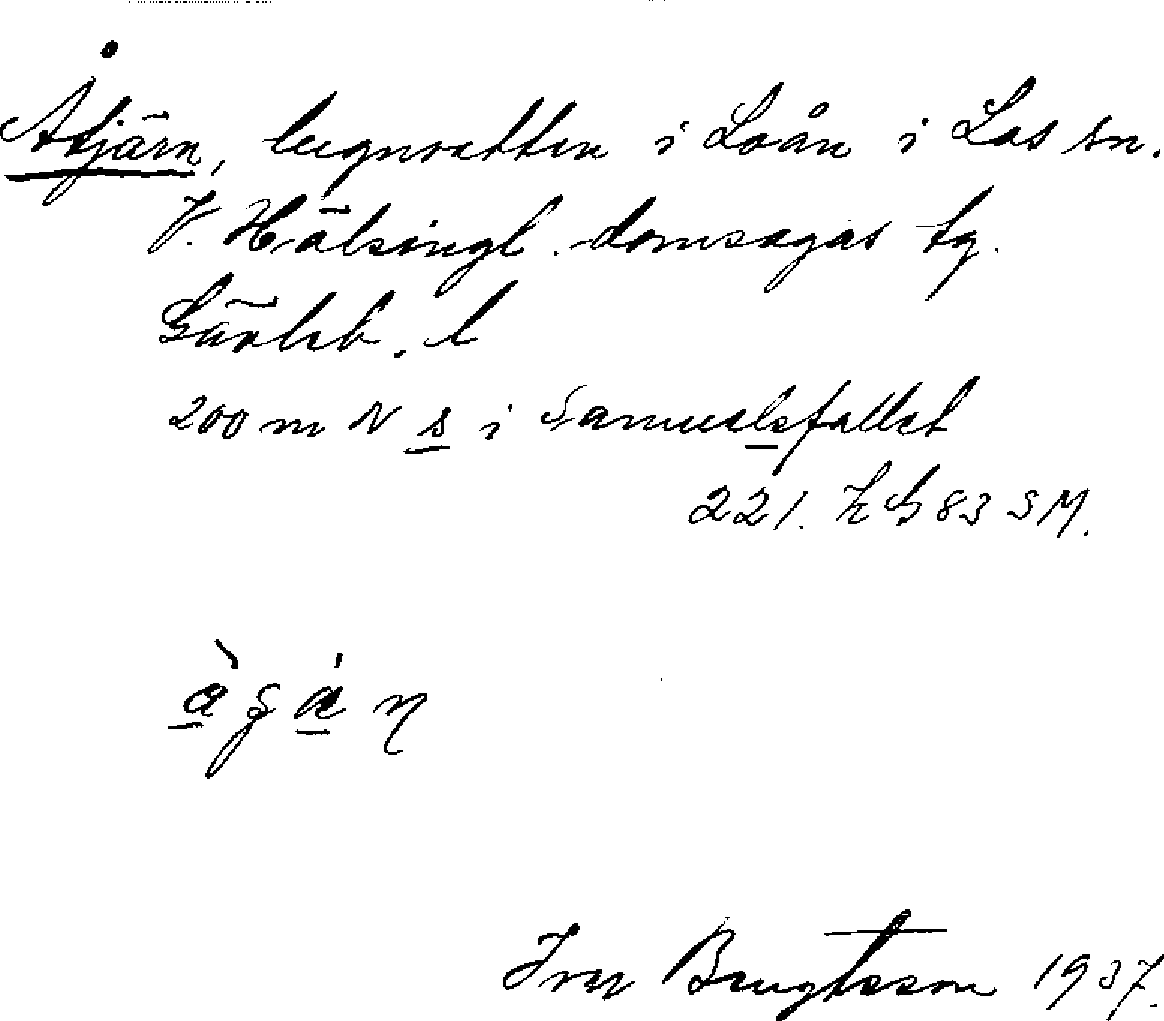 Åtjärn, lugnvatten i Loån i Los sn.
V. Hälsingl. domsagas tg.
Gävleb. l
200 m N s i Samuelsfallet
221. 83 SM.
Ivar Bengtsson 1937.